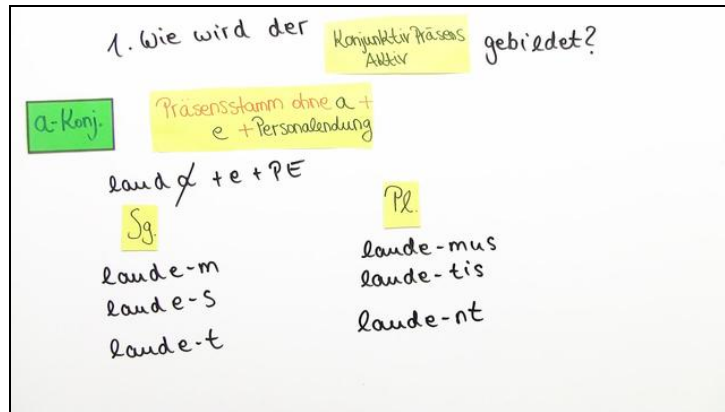 1. Wie wird der Konjunktiv Präsens gebildet?
Aktiv
a-Konj.
Präsensstamm ohne a +
e + Personalendung
lauda + e + PE
Sg.
laude-m
laude-s
laude-t
Pl.
laude-mus
laude-tis
laude-nt